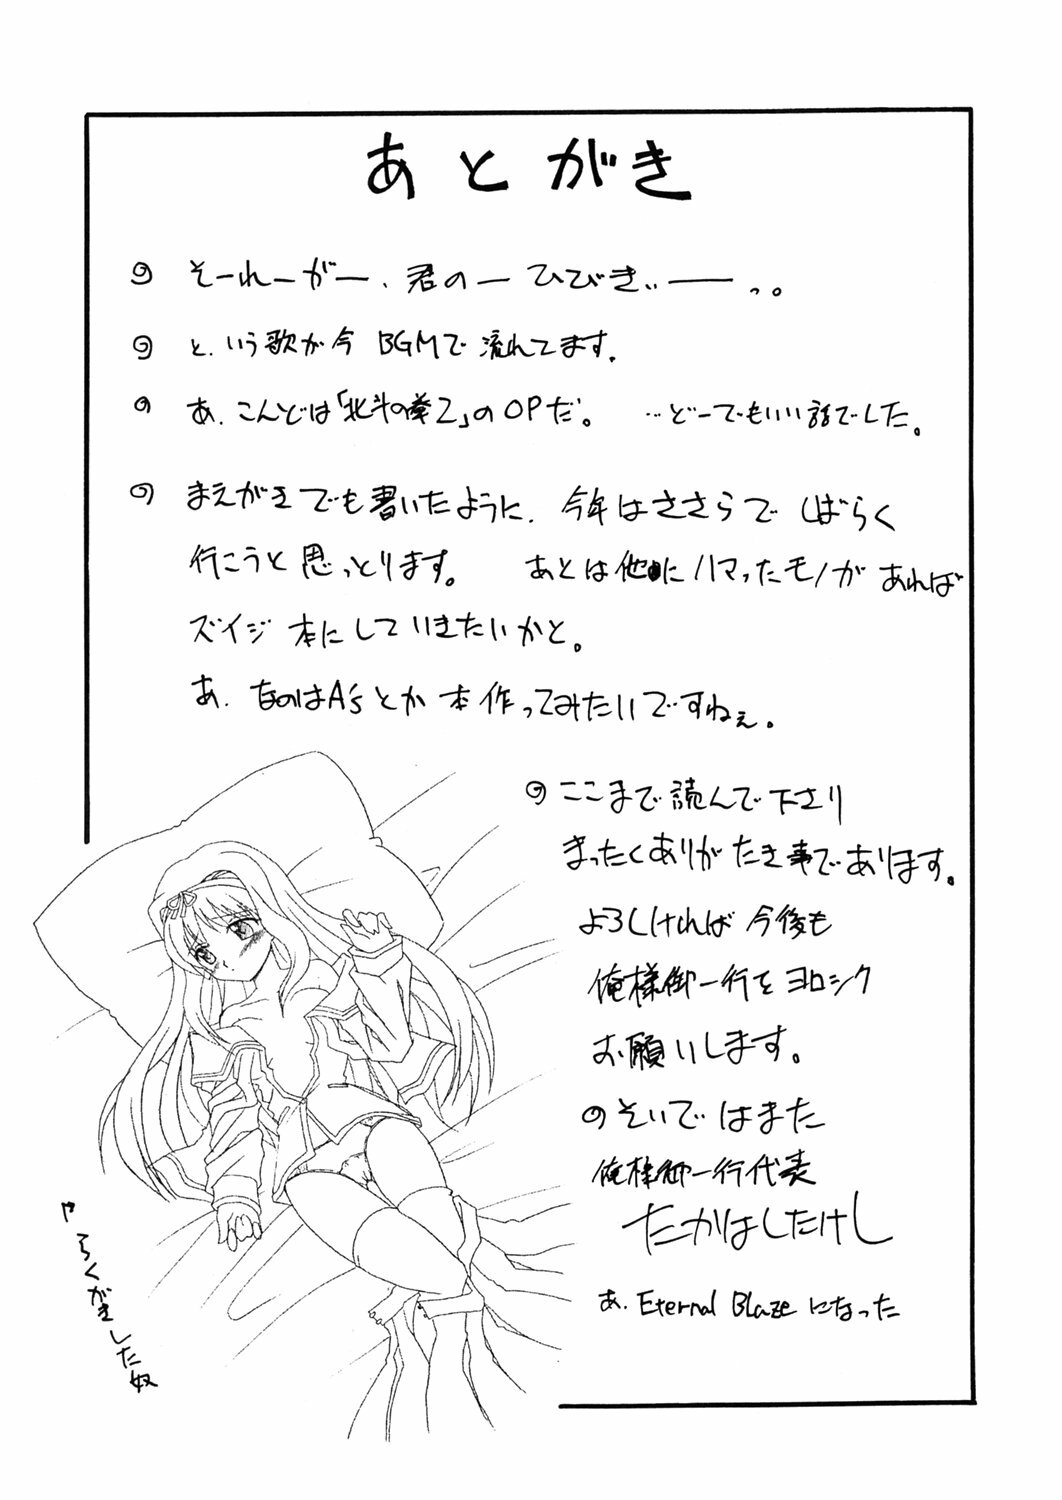 あとがき
の そーれーがー、君のーひびきぃ――っ。
の と、いう歌が今 BGMで流れてます。
の あ、こんどは「北斗の拳2」のOPだ。 …どーでもいい話でした。
の まえがきでも書いたように、今年はささらでしばらく
行こうと思っとります。 あとは他にハマったモノがあれば
ズイジ本にしていきたいかと。
あ、なのはA'sとか本作ってみたいですねぇ。
の ここまで読んで下さり
まったくありがたき事であります。
よろしければ今後も
俺様御一行をヨロシク
お願いします。
の そいではまた
俺様御一行代表
たかはしたけし
あ、Eternal Blazeになった
らくがきした奴